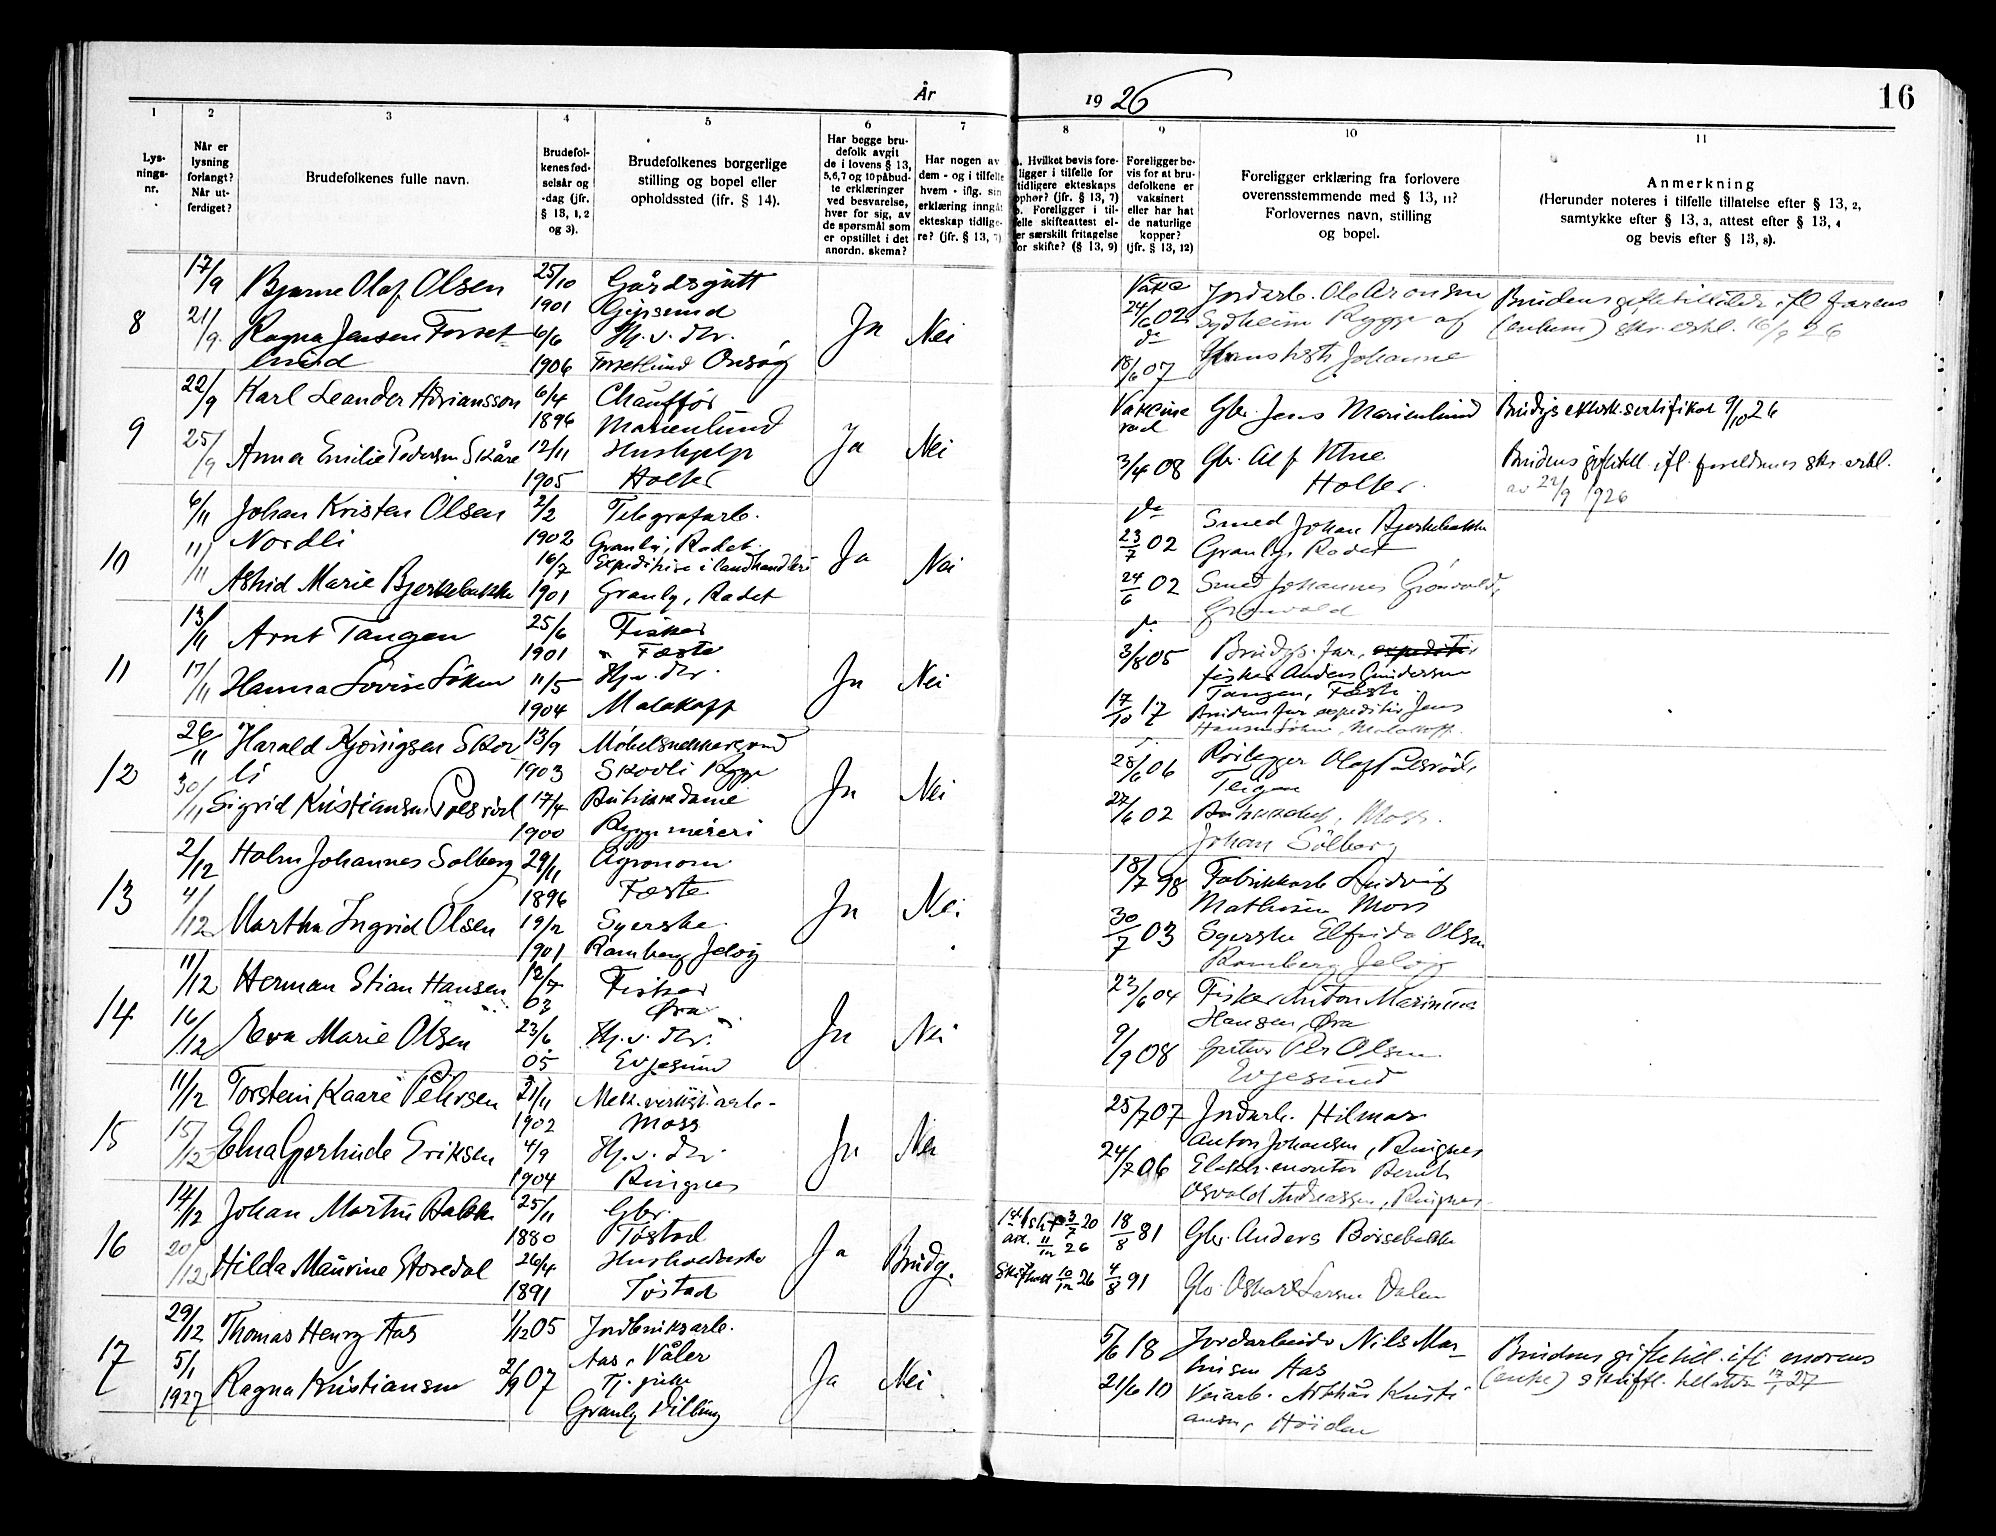 År 1926
16
1 2 3 4 5 6 7 8 9 10 11
Lys-
nings-
nr.
Når er
lysning
forlangt?
Når ut-
ferdiget?
Brudefolkenes fulle navn.
Brudefol-
kenes fød-
selsår og
-dag (jfr.
§ 13, 1, 2
og 3).
Brudefolkenes borgerlige
stilling og bopel eller
opholdssted (ifr. § 14).
Har begge bru-
defolk avgit
de i lovens § 13,
5,6,7 og 10 påbud-
te erklæringer
ved besvarelse,
hver for sig, av
de spørsmål som
er opstillet i det
anordn. skema?
Har nogen av
dem - og i tilfelle
hvem - iflg. sin
erklæring inngåt
ekteskap tidlige-
re? (jfr. § 13, 7)
a. Hvilket bevis fore-
ligger i tilfelle for
tidligere ekteskaps
ophør? (jfr. § 13, 7)
b. Foreligger i til-
felle skifteattest el-
ler særskilt fritagelse
for skifte? (§ 13, 9)
Foreligger be-
vis for at bru-
defolkene er
vaksinert
eller har hat
de naturlige
kopper?
(jfr. § 13, 12)
Foreligger erklæring fra forlovere
overensstemmende med § 13, 11?
Forlovernes navn, stilling
og bopel.
Anmerkning
(Herunder noteres i tilfelle tillatelse efter § 13, 2,
samtykke efter § 13, 3, attest efter § 13, 4
og bevis efter § 13, 8).
8
17/9
21/9.
Bjarne Olaf Olsen
Ragna Jensen Forset-
lund
25/10
1901
6/6
1906
Gårdsgutt
Hj. v. dtr.
Forsetlund Onsøy
Ja
Nei
24/6 02
do
18/6 07
Jordarb. Ole Aronsen
Sydheim Rygge af
Johanne
Brudens giftetillatelse ifl farens
(enkem) skr. erkl. 16/9 26
9
22/9
25/9
Karl Leander Adriansson
Anna Emilie Pedersen Skåre
6/4
1896
12/11
1905
Chauffør
Marienlund
Hushjelp
Holter
Ja
Nei
3/4 08
Gbr. Jens Marienlund
Gbr. Alf
Holter.
Brudgs ektesk.sertifikat 9/10 26
Brudens giftetill. ifl. foreldrenes skr. erkl.
av 22/9 1926
10
6/11
11/11
Johan Kristen Olsen
Nordli
Astrid Marie Bjerkebakke
2/2
1902
16/7
1901
Telegrafarb.
Granly, Rådet.
Expeditrise i landhandleri
Granly, Radet
Ja
Nei
do
23/7 02
24/6 02
Smed Johan Bjerkebakke
Granly, Radet
Smed Johannes Grönvold,
Grönvold
11
13/11
17/11
Arnt Tangen
Hanna Lovise Söken
25/6
1901
11/5
1904
Fisker
Fæste
Hj. v. dtr.
Malakoff
Ja
Nei
do.
3/8 05
17/10 17
Brudgs. far,
fisker Anders Gundersen
Tangen, Fæste.
Brudens far expeditör Jens
Hansen Söken, Malakoff.
12
26/11
30/11
Harald Kjönigsen Skov
li
Sigrid Kristiansen Pålsröd
13/9
1903
17/4
1900
Möbelsnekkersvend
Skovli Rygge
Butikkdame
Rygge meieri
Ja
Nei
28/6 06
27/6 02
Rörlegger Olaf Palsröd,
Teigen
Moss.
Johan Sölberg
13
2/12
4/12
Holm Johannes Solberg
Martha Ingrid Olsen
29/11
1896
19/2
1901
Agronom
Fæste
Syerske
Ramberg Jelöy
Ja
Nei
18/7 98
30/7 03
Fabrikkarb Ludvig
Mathisen Moss
Syerske Elfrida Olsen
Ramberg, Jelöy
14
11/12
16/12
Herman Stian Hansen
Eva Marie Olsen
12/7
03
23/6
05
Fisker
Øra
Hj. v. dtr.
Evjesund
Ja
Nei
23/6 04
9/9 08
Fisker Anton Marinius
Hansen, Øra
Olsen
Evjesund
15
11/12
15/12
Torstein Kaare Pettersen
Elna Gjertrude Eriksen
21/11
1902
4/9
1904
Mek. verkst. arb.
Moss
Hj. v. dtr.
Ringnes
Ja
Nei
25/7 07
24/7 06
Jordarb. Hilmar
Anton Johansen, Ringnes
Elektr. montör Bernt
Osvald Andreassen, Ringnes
16
14/12
20/12
Johan Martin Bakke
Hilda Maurine Storedal
25/11
1880
26/4
1891
Gbr.
Tøstad
Husholderske
Tøstad
Ja
Brudg.
3/7 20
11/12 26
10/12 26
18/8 81
4/8 91
Gbr. Anders Börsebakke
Gbr. Oskar Larsen Dalen
17
29/12
5/1
1927
Thomas Henry Aas
Ragna Kristiansen
1/12 05
2/9 07
Jordbruksarb.
Aas, Våler
Tj. pike
Granly Dilling
Ja
Nei
5/6 18
21/6 10
Jordarbeider Nils Mar-
tinsen Aas
Veiarb. Arthur Kristi-
ansen, Höiden
Brudens giftetill. ifl. morens
(enke) skriftl. tillatelse 17/1 27